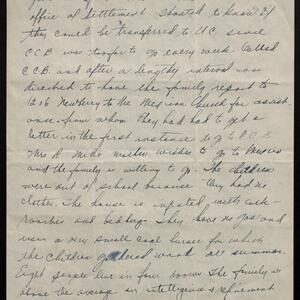 office of Settlement wanted to know if
they could be transferred to U.C. since
C.C.B. was too far to go every week. Called
C.C.B. and after a lengthy interval was
directed to have the family report to
1216 Newberry to the Mexican Church for assist
ance from whom they had had to get a
letter in the first instance to go to C.C.B.
Mr & Mrs mother wishes to go to Mexico
and the family is willing to go. The children
were out of school because they had no
clothes. The house is infested with cock
roaches and bedbugs. They have no gas and
use a very small coal burner for which
the children gathered wood all summer.
Eight people live in four rooms. The family is
above the average in intelligence & refinement